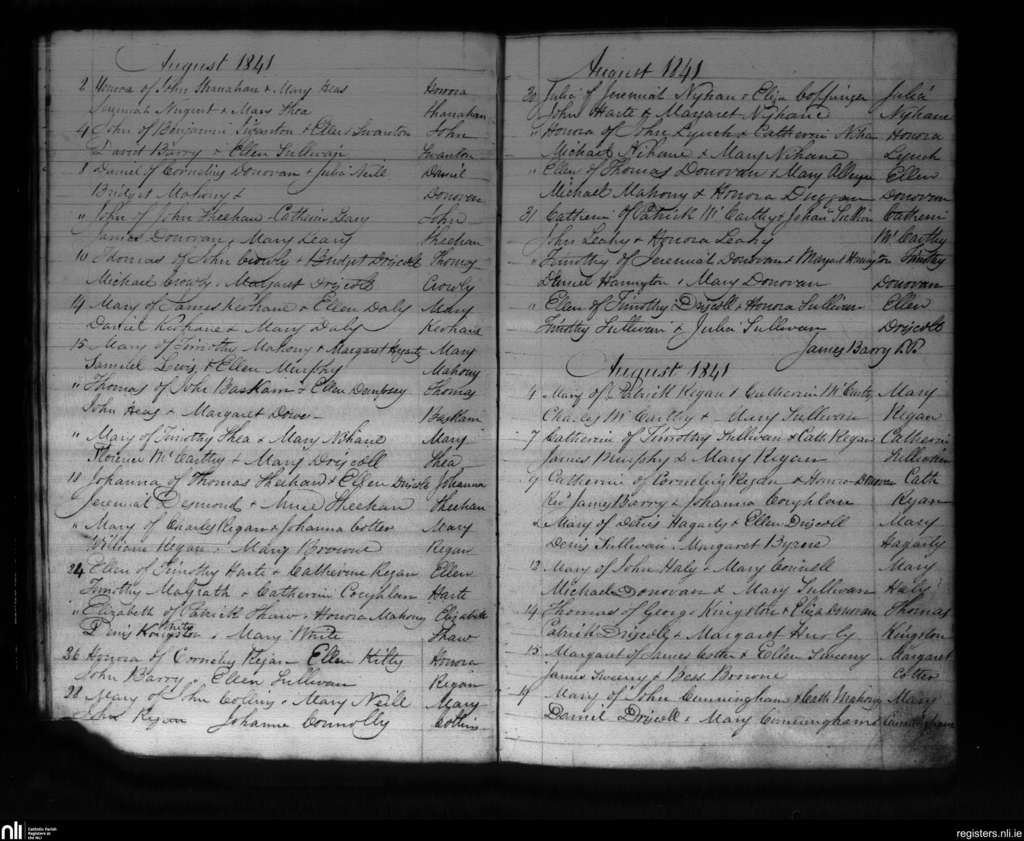 August 1841
2 Honora of John Shanahan & Mary Heas Honora
Nugent & Mary Shea Shanahan
4 John of Benjamin Swanton & Ellen Swanton John
David Barry & Ellen Sullivan Swanton
8 Daniel of Cornelius Donovan & Julia Neill Daniel
Bridget Mahony & Donovan
" John of John Sheehan & Catherin Leary John
James Donovan & Mary Leary Sheehan
10 Thomas of John Crowly & Bridget Driscoll Thomas
Michael Crowly & Margaret Driscoll Crowly
14 Mary of James Keohane & Ellen Daly Mary
Daniel Keohane & Mary Daly Keohane
15 Mary of Timothy Mahony & Margaret Hegarty Mary
Samuel & Ellen Murphy Mahony
" Thomas of John Baskam & Ellen Dempsey Thomas
John Heas & Margaret Baskam
" Mary of Timothy Shea & Mary Nihane Mary
Florence McCarthy & Mary Driscoll Shea
18 Johanna of Thomas Sheehan & Ellen Driscoll Johanna
Jeremiah Desmond & Sheehan Sheehan
" Mary of Charles Regan & Johanna Cotter Mary
William Regan & Mary Browne Regan
24 Ellen of Timothy Harte & Catherine Regan Ellen
Timothy Magrath & Catherin Coughlan Harte
" Elizabeth of Patrick Shaw & Honora Mahony Elizabeth
Denis Kongston White & Mary White Shaw
26 Honora of Cornelius Regan Ellen Kilty Honora
John Barry & Ellen Sullivan Regan
28 Mary of John Collins & Mary Neill Mary
John Regan Johanna Connolly Collins
August 1841
30 Julia of Jeremiah Nyhan & Eliza Coppinger Julia
John Harte & Margaret Nyhane Nyhane
" Honora of John Lynch & Catherin Nihan Honora
Michael Nihane & Mary Nihane Lynch
" Ellen of Thomas Donovan & Mary Ellen
Michael Mahony & Honora Duggan Donovan
31 Catherin of Patrick McCarthy & Johan Sullivan Catherin
John Leahy & Honora Leahy McCarthy
" Timothy of Jeremiah Donovan & Margaret Harrington Timothy
Daniel Harrington & Mary Donovan Donovan
" Ellen of Timothy Driscoll & Honora Sullivan Ellen
Timothy Sullivan & Julia Sullivan Driscoll
James Barry P.P.
August 1841
4 Mary of Patrick Regan & Catherin McCarty Mary
Charles McCarthy & Mary Sullivan Regan
7 Catherin of Timothy Sullivan & Cath Regan Catherin
James Murphy & Mary Regan Sullivan
9 Catherin of Cornelius Regan & Honora Donovan Cath
Revd James Barry & Johanna Coughlan Regan
Mary of Denis Hagarty & Ellen Driscoll Mary
Denis Sullivan & Margaret Byrne Hagarty
12 Mary of John Haly & Mary Mary
Michael Donovan & Mary Sullivan Haly
14 Thomas of George Kingston & Eliza Donovan Thomas
Patrick Driscoll & Margaret Hurly Kingston
15 Margaret of James Cotter & Ellen Sweeny Margaret
James Sweeny & Bess Browne Cotter
17 Mary of John Cunningham & Cath Mahony Mary
Daniel Driscoll & Mary Cunningham Cunningham
nli
Catholic Parish
Registers at
the NLI
registers.nli.ie